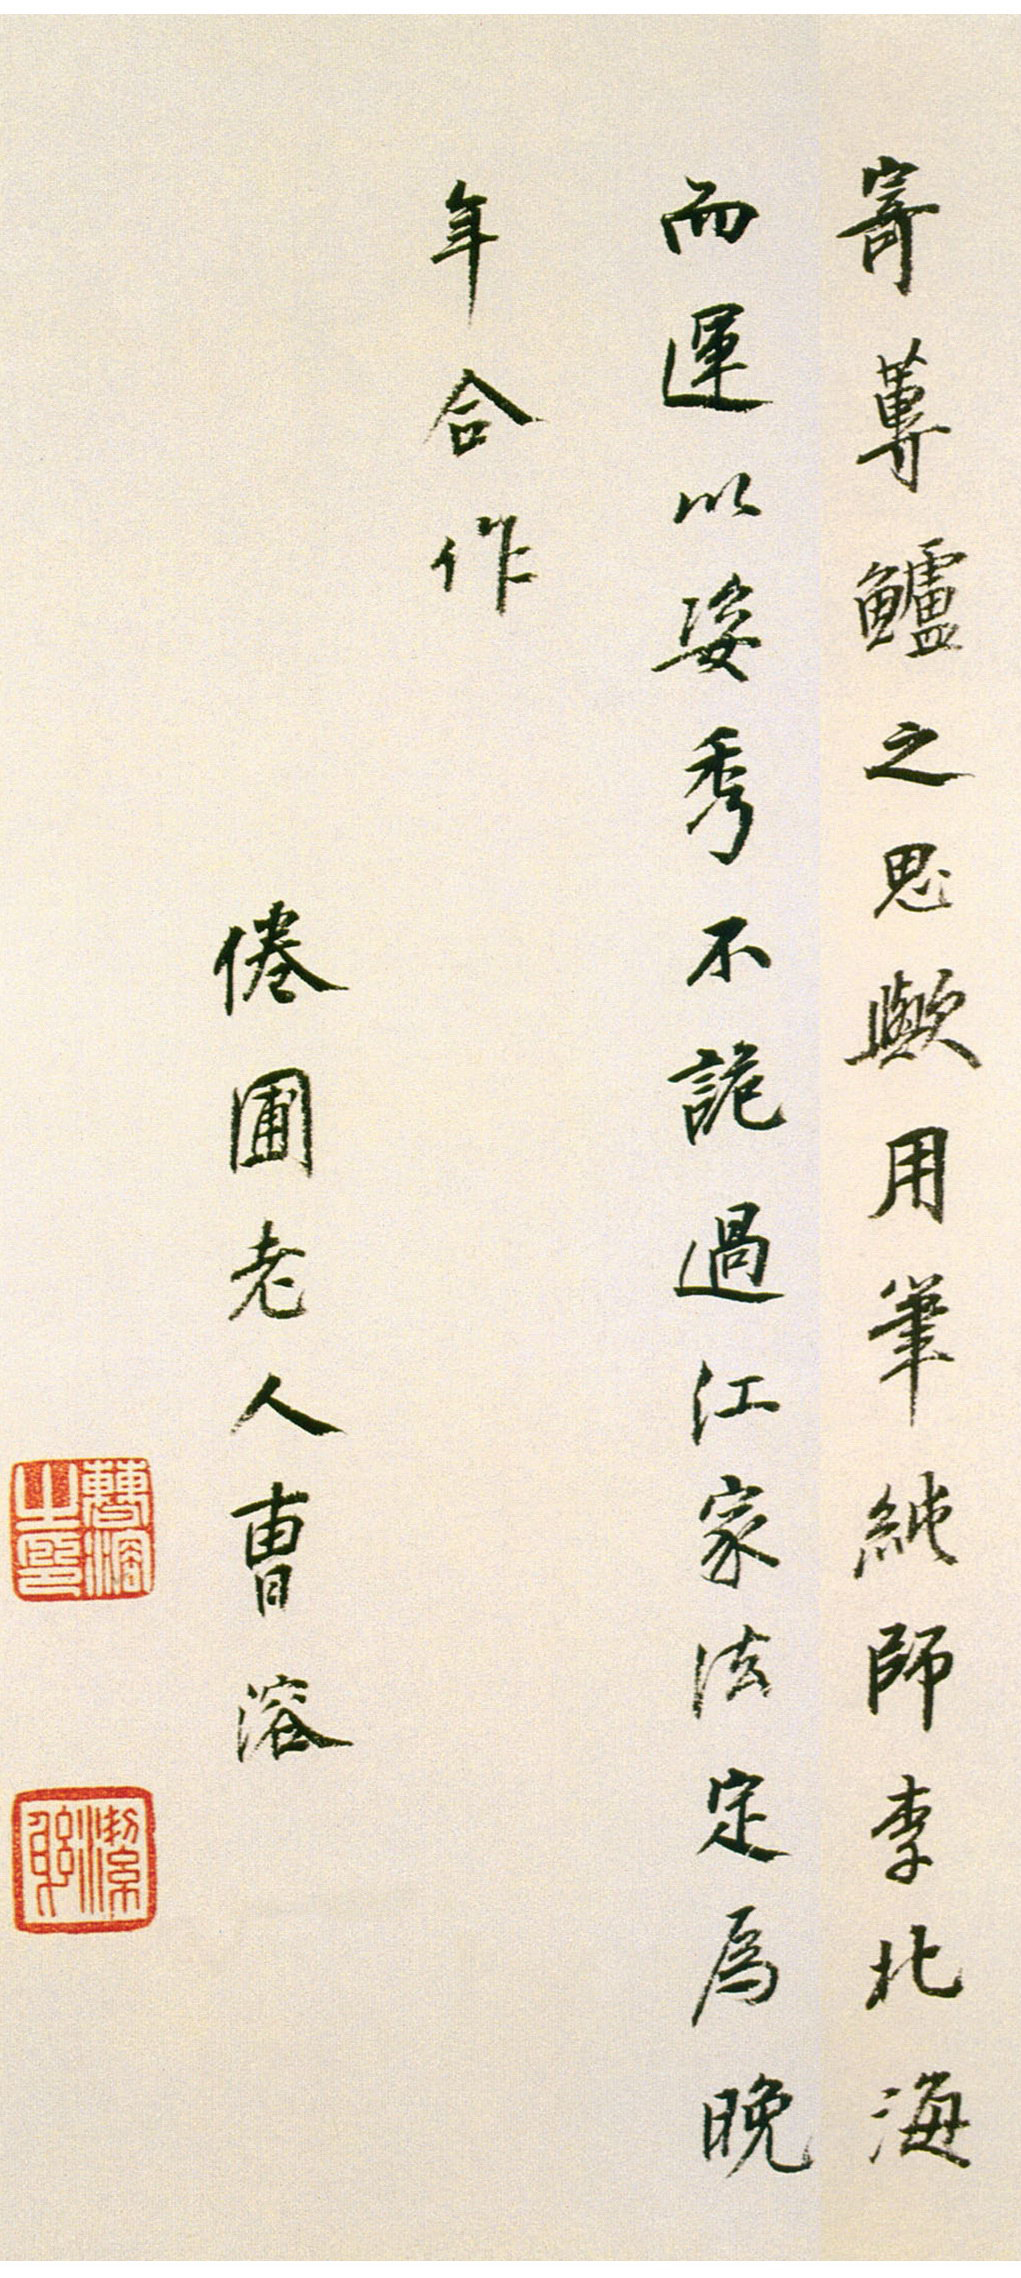 寄蓴鱸之思歟用筆純師李北海
而運以姿秀不詭過江家法定爲晚
年合作
倦圃老人曹溶
曹溶之印
潔躬